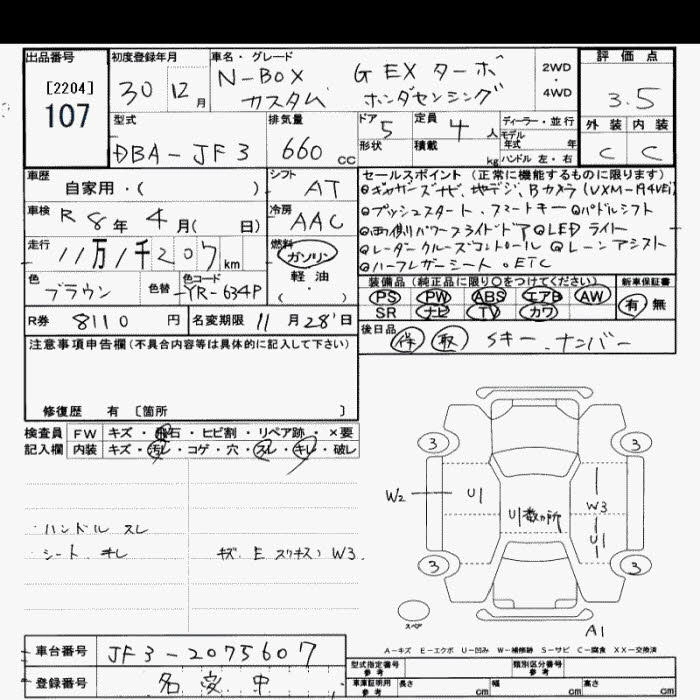 出品番号
[2204]
107
初度登録年月
30 12月
車名・グレード
N-BOX G EX ターボ
カスタム ホンダセンシング
2WD
・
4WD
評価点
3.5
外装 内装
C C
型式
DBA-JF3
排気量
660 cc
ドア 5
定員 4 人
形状
積載 kg
ディーラー・並行
モデル
年式 年
ハンドル 左・右
車歴
自家用・( )
シフト
AT
車検 R8年 4月( 日)
冷房
AAC
走行 11万1千207 km
燃料
ガソリン
軽油
( ・ )
色 ブラウン
色替
色コード
YR-634P
セールスポイント (正常に機能するものに限ります)
◎ギャザーズナビ、地デジ、Bカメラ(VXM-194VFi)
◎プッシュスタート、スマートキー ◎パドルシフト
◎両側パワースライドドア ◎LEDライト
◎レーダークルーズコントロール ◎レーンアシスト
◎ハーフレザーシート・ETC
装備品 (純正品に限り○をつけてください)
新車保証書
PS PW ABS エアB AW
SR ナビ TV カワ
有 無
R券 8110 円
名変期限 11月28日
後日品 保 取 Sキー、ナンバー
注意事項申告欄(不具合内容等は具体的に記入して下さい)
修復歴 有 〔箇所 〕
検査員
記入欄
FW キズ・飛石・ヒビ割・リペア跡・×要
内装 キズ・汚レ・コゲ・穴・スレ・キレ・破レ
・ハンドル スレ
・シート、キレ
キズ、E スリキズ) W3.
3 3
W2 U1 U1数ヵ所 W3
U1
3 3
スペア
A1
A-キズ E-エクボ U-凹み W-補修跡 S-サビ C-腐食 XX-交換済
車台番号 JF3-2075607
登録番号 名変中
型式指定番号
参考
類別区分番号
参考
車庫証明用
参考
長さ cm 幅 cm 高さ cm